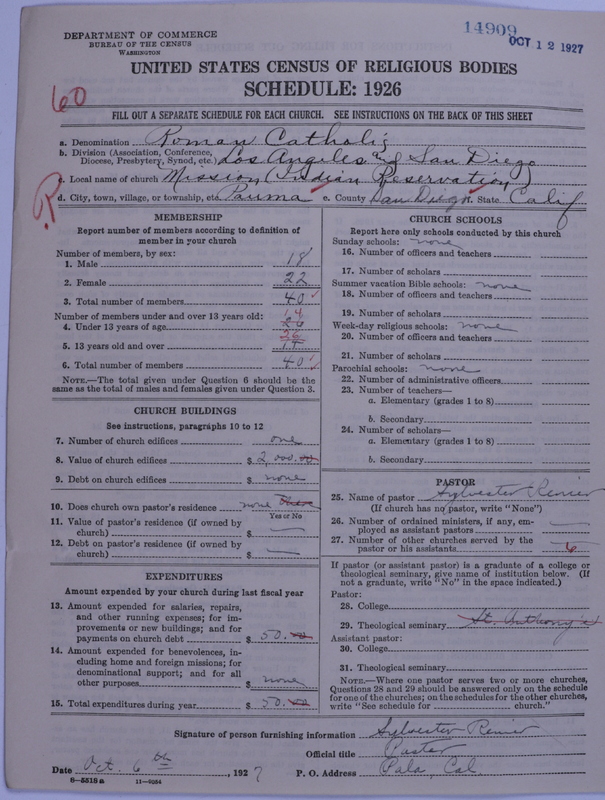 14909
OCT 12 1927
DEPARTMENT OF COMMERCE
BUREAU OF THE CENSUS
WASHINGTON
UNITED STATES CENSUS OF RELIGIOUS BODIES
SCHEDULE: 1926
60
FILL OUT A SEPARATE SCHEDULE FOR EACH CHURCH. SEE INSTRUCTIONS ON THE BACK OF THIS SHEET
a. Denomination Roman Catholic
b. Division (Association, Conference, Diocese, Presbytery, Synod, etc.) Los Angeles and San Diego
c. Local name of church Mission (Indian Reservation)
d. City, town, village, or township, etc. Pauma e. County San Diego f. State Calif
R
MEMBERSHIP
Report number of members according to definition of
member in your church
Number of members, by sex:
1. Male 18
2. Female 22
3. Total number of members 40
Number of members under and over 13 years old:
4. Under 13 years of age 14
5. 13 years old and over 26
6. Total number of members 40
NOTE.—The total given under Question 6 should be the
same as the total of males and females given under Question 3.
CHURCH BUILDINGS
See instructions, paragraphs 10 to 12
7. Number of church edifices one
8. Value of church edifices $ 2,000.00
9. Debt on church edifices $ none
10. Does church own pastor's residence none
Yes or No
11. Value of pastor's residence (if owned by
church) $ —
12. Debt on pastor's residence (if owned by
church) $ —
EXPENDITURES
Amount expended by your church during last fiscal year
13. Amount expended for salaries, repairs,
and other running expenses; for im-
provements or new buildings; and for
payments on church debt $ 50.00
14. Amount expended for benevolences, in-
cluding home and foreign missions; for
denominational support; and for all
other purposes $ none
15. Total expenditures during year $ 50.00
CHURCH SCHOOLS
Report here only schools conducted by this church
Sunday schools: none
16. Number of officers and teachers
17. Number of scholars
Summer vacation Bible schools: none
18. Number of officers and teachers
19. Number of scholars
Week-day religious schools: none
20. Number of officers and teachers
21. Number of scholars
Parochial schools: none
22. Number of administrative officers
23. Number of teachers—
a. Elementary (grades 1 to 8)
b. Secondary
24. Number of scholars—
a. Elementary (grades 1 to 8)
b. Secondary
PASTOR
25. Name of pastor Sylvester Renier
(If church has no pastor, write "None")
26. Number of ordained ministers, if any, em-
ployed as assistant pastors —
27. Number of other churches served by the
pastor or his assistants 6
If pastor (or assistant pastor) is a graduate of a college or
theological seminary, give name of institution below. (If
not a graduate, write "No" in the space indicated.)
Pastor:
28. College
29. Theological seminary St. Anthony's
Assistant pastor:
30. College
31. Theological seminary
NOTE.—Where one pastor serves two or more churches,
Questions 28 and 29 should be answered only on the schedule
for one of the churches; on the schedules for the other churches,
write "See schedule for church."
Signature of person furnishing information Sylvester Renier
Official title Pastor
Date Oct. 6th, 1927 P. O. Address Pala, Cal.
8-5518a 11-9054